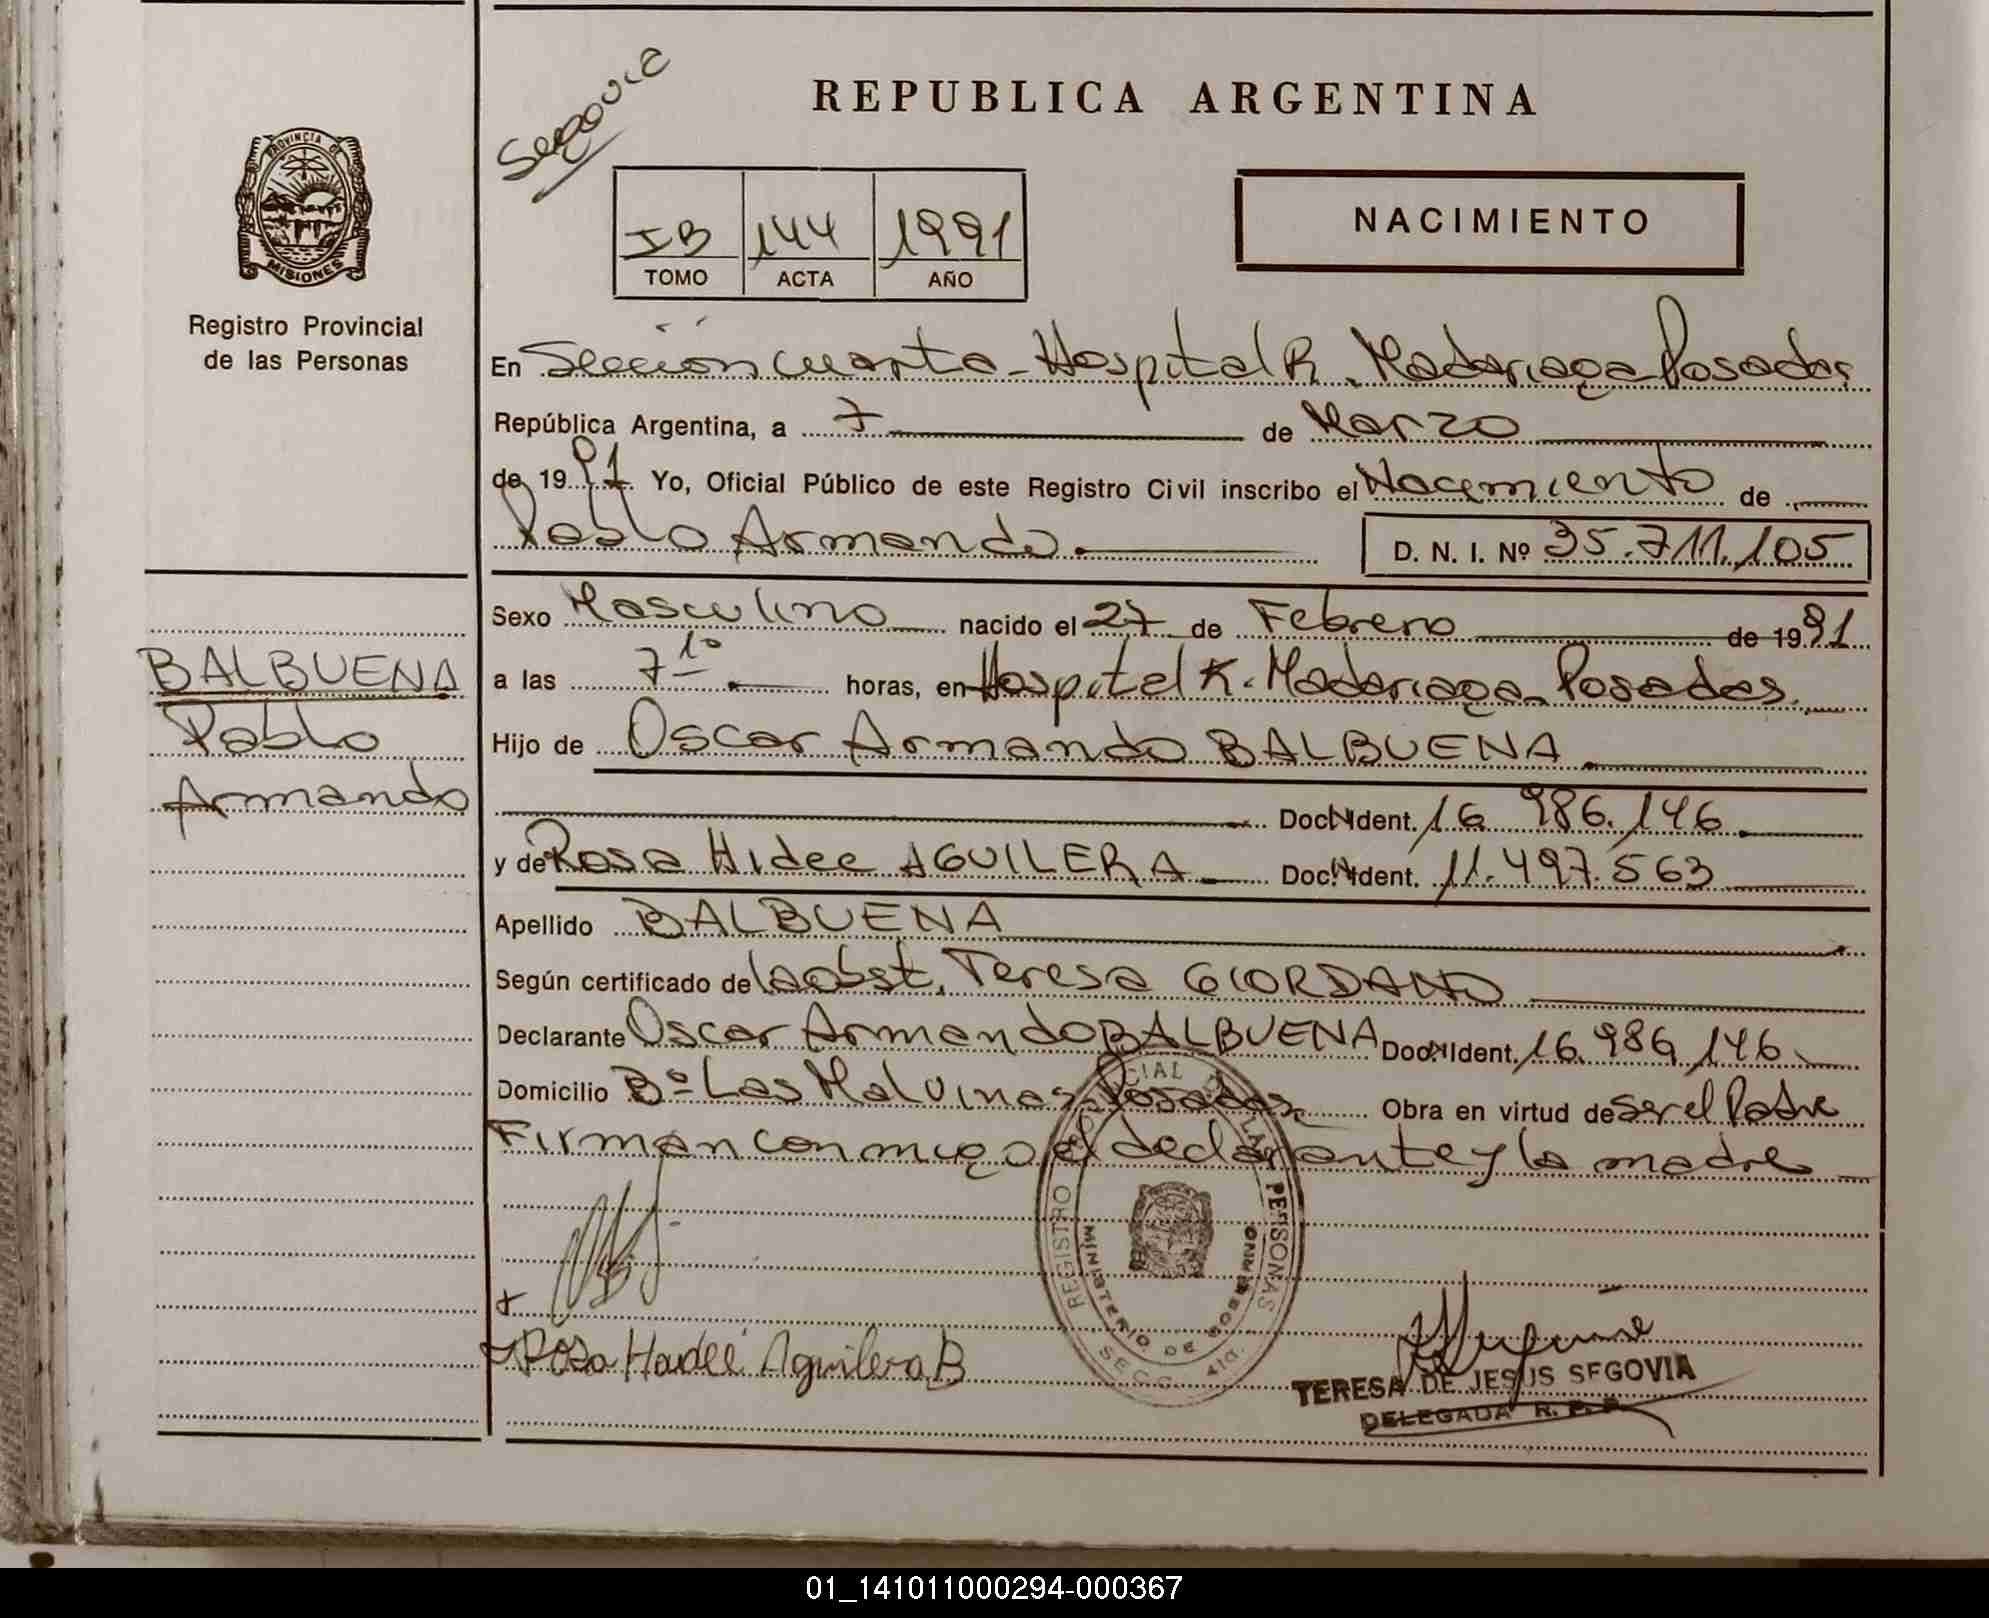 Segovia
REPUBLICA ARGENTINA
PROVINCIA DE
MISIONES
Registro Provincial
de las Personas
IB 144 1991
TOMO ACTA AÑO
NACIMIENTO
En Sección cuarta - Hospital R. Madariaga Posadas
República Argentina, a 7 de Marzo
de 1991 Yo, Oficial Público de este Registro Civil inscribo el Nacimiento de
Pablo Armando. D. N. I. Nº 35.711.105
Sexo Masculino nacido el 27 de Febrero de 1991
a las 7 10 horas, en Hospital R. Madariaga Posadas.
Hijo de Oscar Armando BALBUENA
Doc. Ident. 16.986.146
y de Rosa Hidee AGUILERA Doc. Ident. 11.497.563
Apellido BALBUENA
Según certificado de la obst. Teresa GIORDANO
Declarante Oscar Armando BALBUENA Doc. Ident. 16.986.146
Domicilio Bº Las Malvinas Posadas Obra en virtud de ser el Padre
Firman conmigo el declarante y la madre
BALBUENA
Pablo
Armando
Rosa Haideé Aguilera B
REGISTRO CIAL DE LAS PERSONAS
MINISTERIO DE GOBIERNO
SECC. 4ta.
TERESA DE JESUS SEGOVIA
DELEGADA R. P. P.
01_141011000294-000367